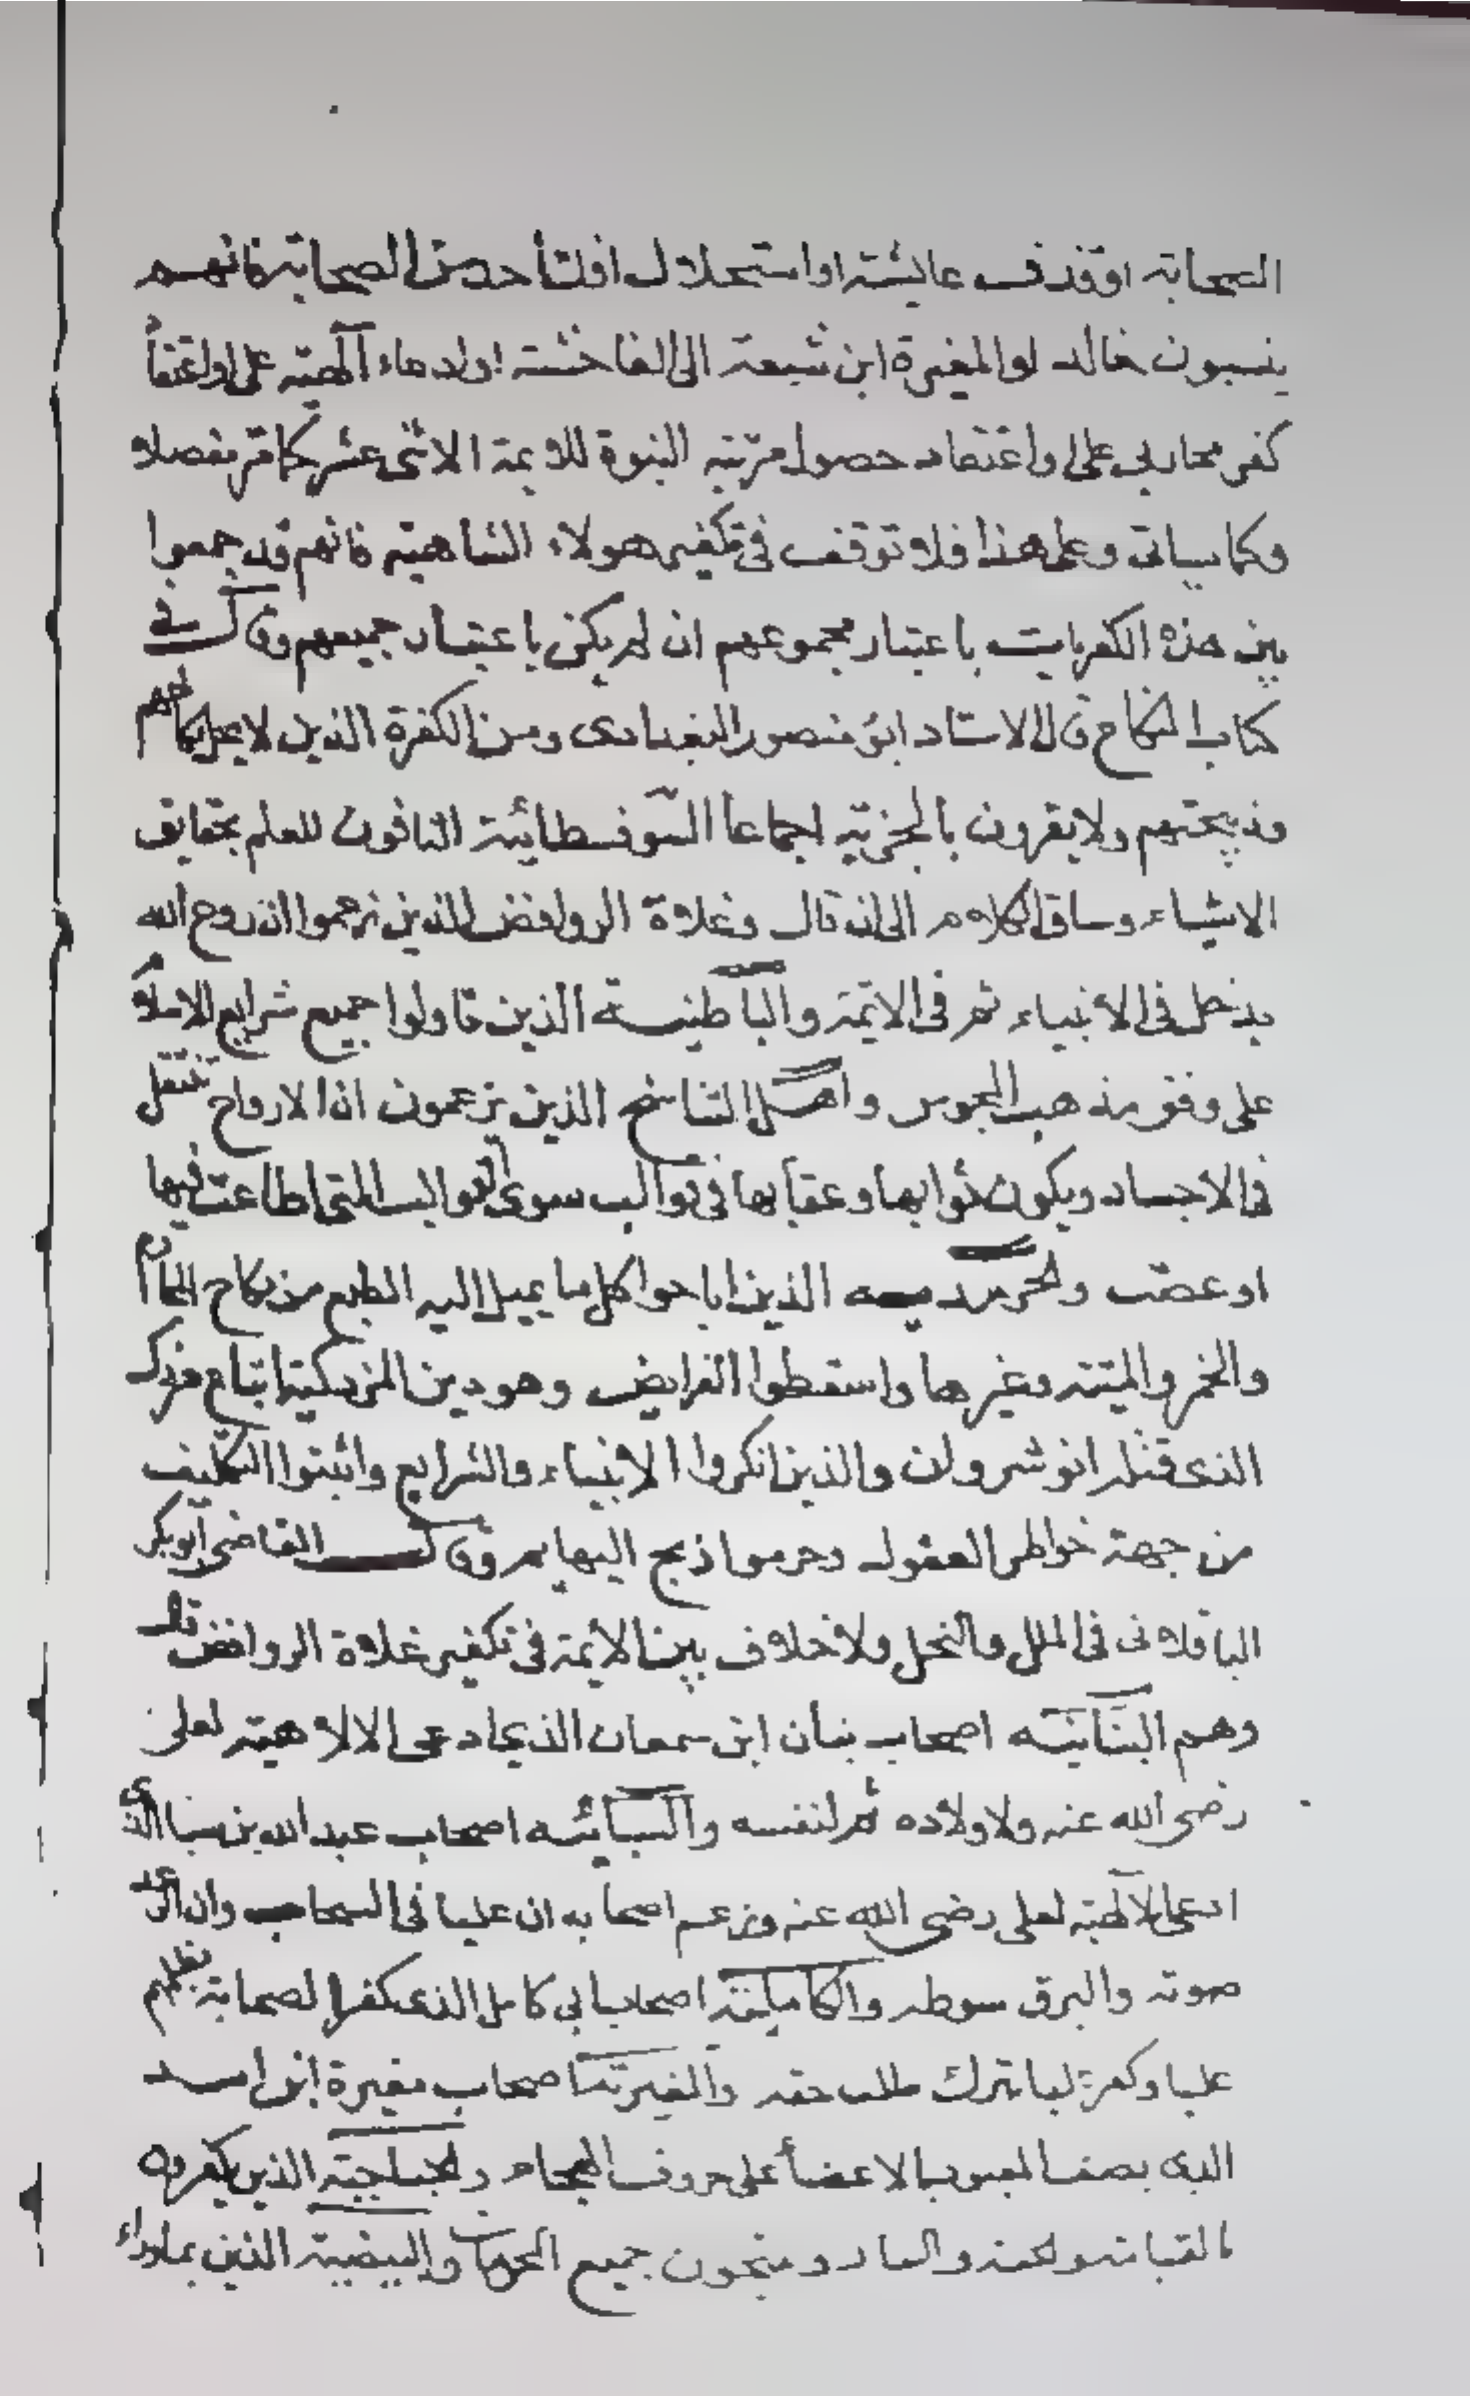 الصحابة او قذف عايشة او استحلال افك احد من الصحابة فانهم
ينسبون خالد او المغيرة ابن شعبة الى الفاحشة او ادعاء آلهية على او اعتقاد
كفر محاربى على او اعتقاد حصول مرتبة النبوة للايمة الاثنى عشر كما مر مفصلا
وكما سياتى وعلى هذا فلا توقف فى تكفير هولاء الشاهية فانهم قد جمعوا
بين هذه الكفريات باعتبار مجموعهم ان لم يكن باعتبار جميعهم وقال فى
كتاب النكاح قال الاستاد ابو منصور البغدادى ومن الكفرة الذين لا يحل نكاحهم
وذبيحتهم ولا يقرون بالجزية اجماعا السوفسطائية النافون للعلم بحقايق
الاشياء وساق الكلام الى ان قال وغلاة الروافض الذين زعموا ان روح الله
يدخل فى الانبياء ثم فى الائمة والباطنيه الذين تاولوا جميع شرايع الاسلام
على وفق مذهب المجوس واهل التناسخ الذين يزعمون ان الارواح تنتقل
فى الاجساد ويكون ثوابها وعقابها فى قوالب سوى القوالب التى اطاعت فيها
او عصت والخرمدينيه الذين اباحوا كل ما يميل اليه الطبع من نكاح المحارم
والخمر والميتة وغيرها واسقطوا الفرايض وهو دين المزدكية اتباع مزدك
الذى قتله انوشروان والذين انكروا الانبياء والشرايع واثبتوا التكليف
من جهة خواطر العقول وحرموا ذبح البهايم وقال القاضى ابو بكر
الباقلانى فى الملل والنحل ولا خلاف بين الائمة فى تكفير غلاة الروافض قال
وهم البنانيه اصحاب بنان ابن سمعان الذى ادعى الالاهية لعلى
رضى الله عنه ولاولاده ثم لنفسه والسبائيه اصحاب عبد الله بن سبا الذى
ادعى الالهية لعلى رضى الله عنه وزعم اصحابه ان عليا فى السحاب وان الرعد
صوته والبرق سوطه والكاملية اصحاب ابى كامل الذى كفر الصحابة بظلمهم
عليا وكفر عليا بترك طلب حقه والمغيرية اصحاب مغيرة ابن اسد
الذى يصف المعبود بالاعضا على حروف الهجاء والجناحية الذين يكفرون
بالقيامة والجنة والنار ويبيحون جميع المحرمات والبيضية الذين بماوراء